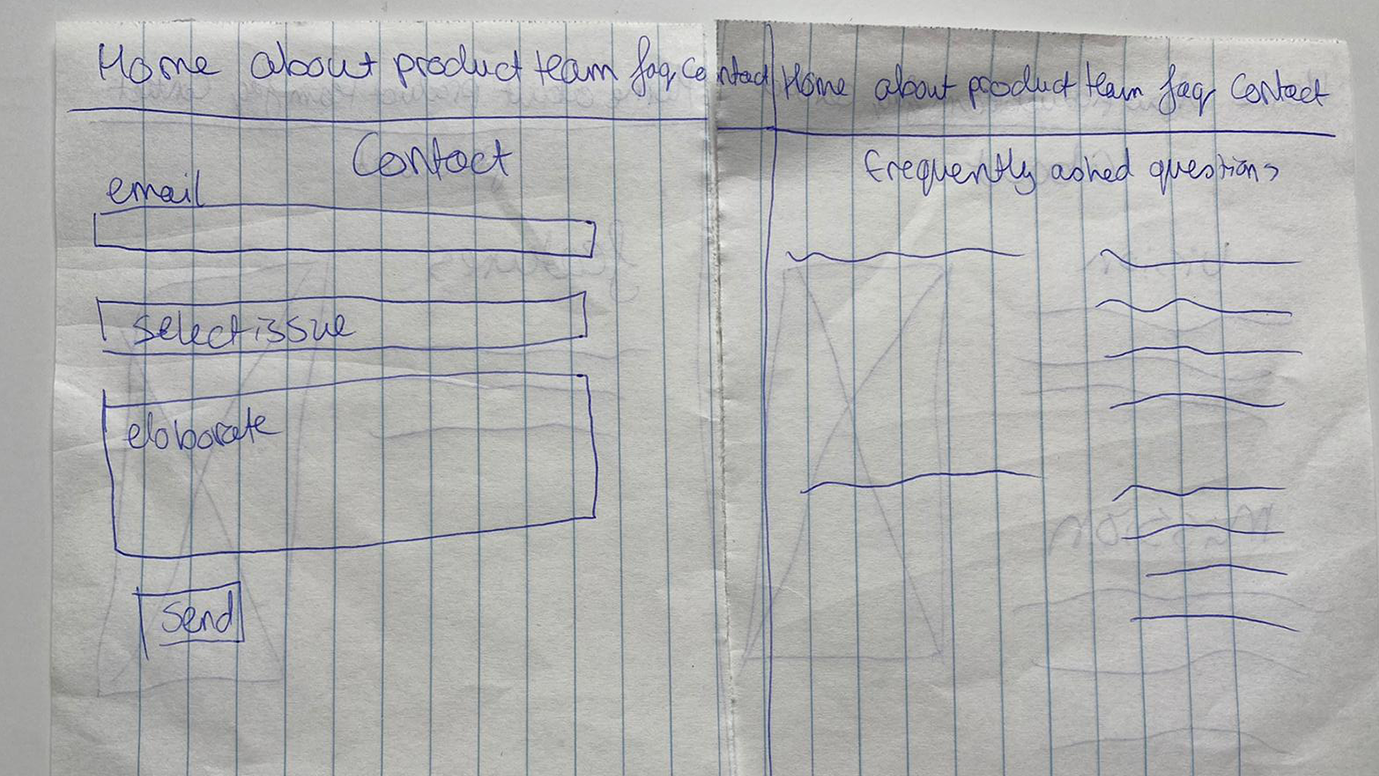 Home about product team faq Contact
Contact
email
select issue
eloborate
Send
Home about product team faq Contact
frequently asked questions